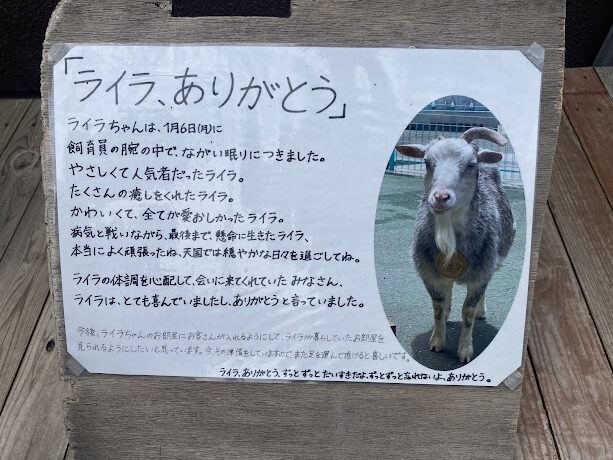 「ライラ、ありがとう」
ライラちゃんは、1月6日(月)に
飼育員の腕の中で、ながい眠りにつきました。
やさしくて人気者だったライラ。
たくさんの癒しをくれたライラ。
かわいくて、全てが愛おしかったライラ。
病気と戦いながら、最後まで、懸命に生きたライラ、
本当によく頑張ったね、天国では穏やかな日々を過ごしてね。
ライラの体調を心配して、会いに来てくれていたみなさん、
ライラは、とても喜んでいましたし、ありがとうと言っていました。
今後、ライラちゃんのお部屋にお客さんが入れるようにして、ライラが暮らしていたお部屋を
見られるようにしたいと思っています。今、その準備をしていますので、また足を運んで頂けると嬉しいです。
ライラ、ありがとう。ずっとずっとだいすきだよ。ずっとずっと忘れないよ、ありがとう。